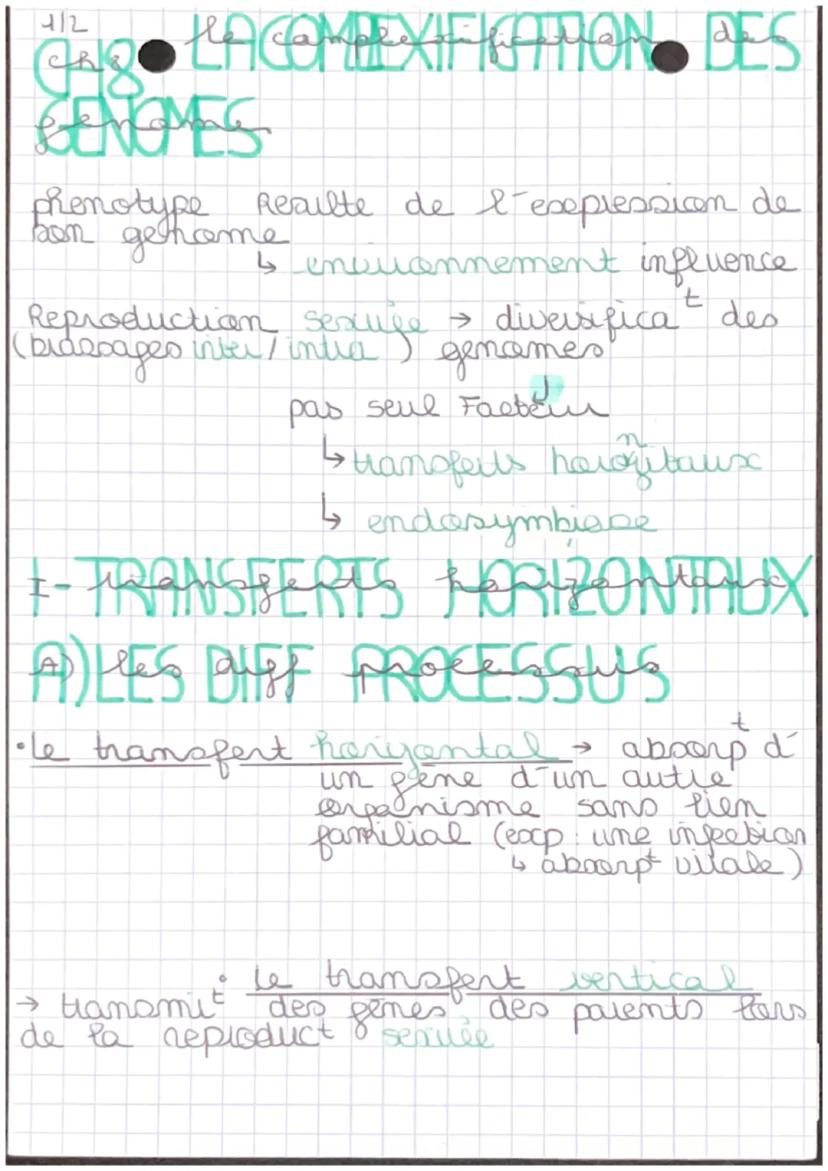 1/2
Ch8 • LA COMPLEXIFICATION • DES
GENOMES
phenotype Resulte de l'expression de
son genome
↳ environnement influence
Reproduction sexuée → diversificat des
(brassages inter/intra) genomes
pas seul Facteur
↳ transferts horizontaux
↳ endosymbiose
I - TRANSFERTS HORIZONTAUX
A) LES DIFF PROCESSUS
• le transfert horizontal → absorpt d'
un gène d'un autre
organisme sans lien
familial (exp : une infection
↳ absorpt virale)
• le transfert vertical
→ transmit des gènes des parents lors
de la reproduct sexuée